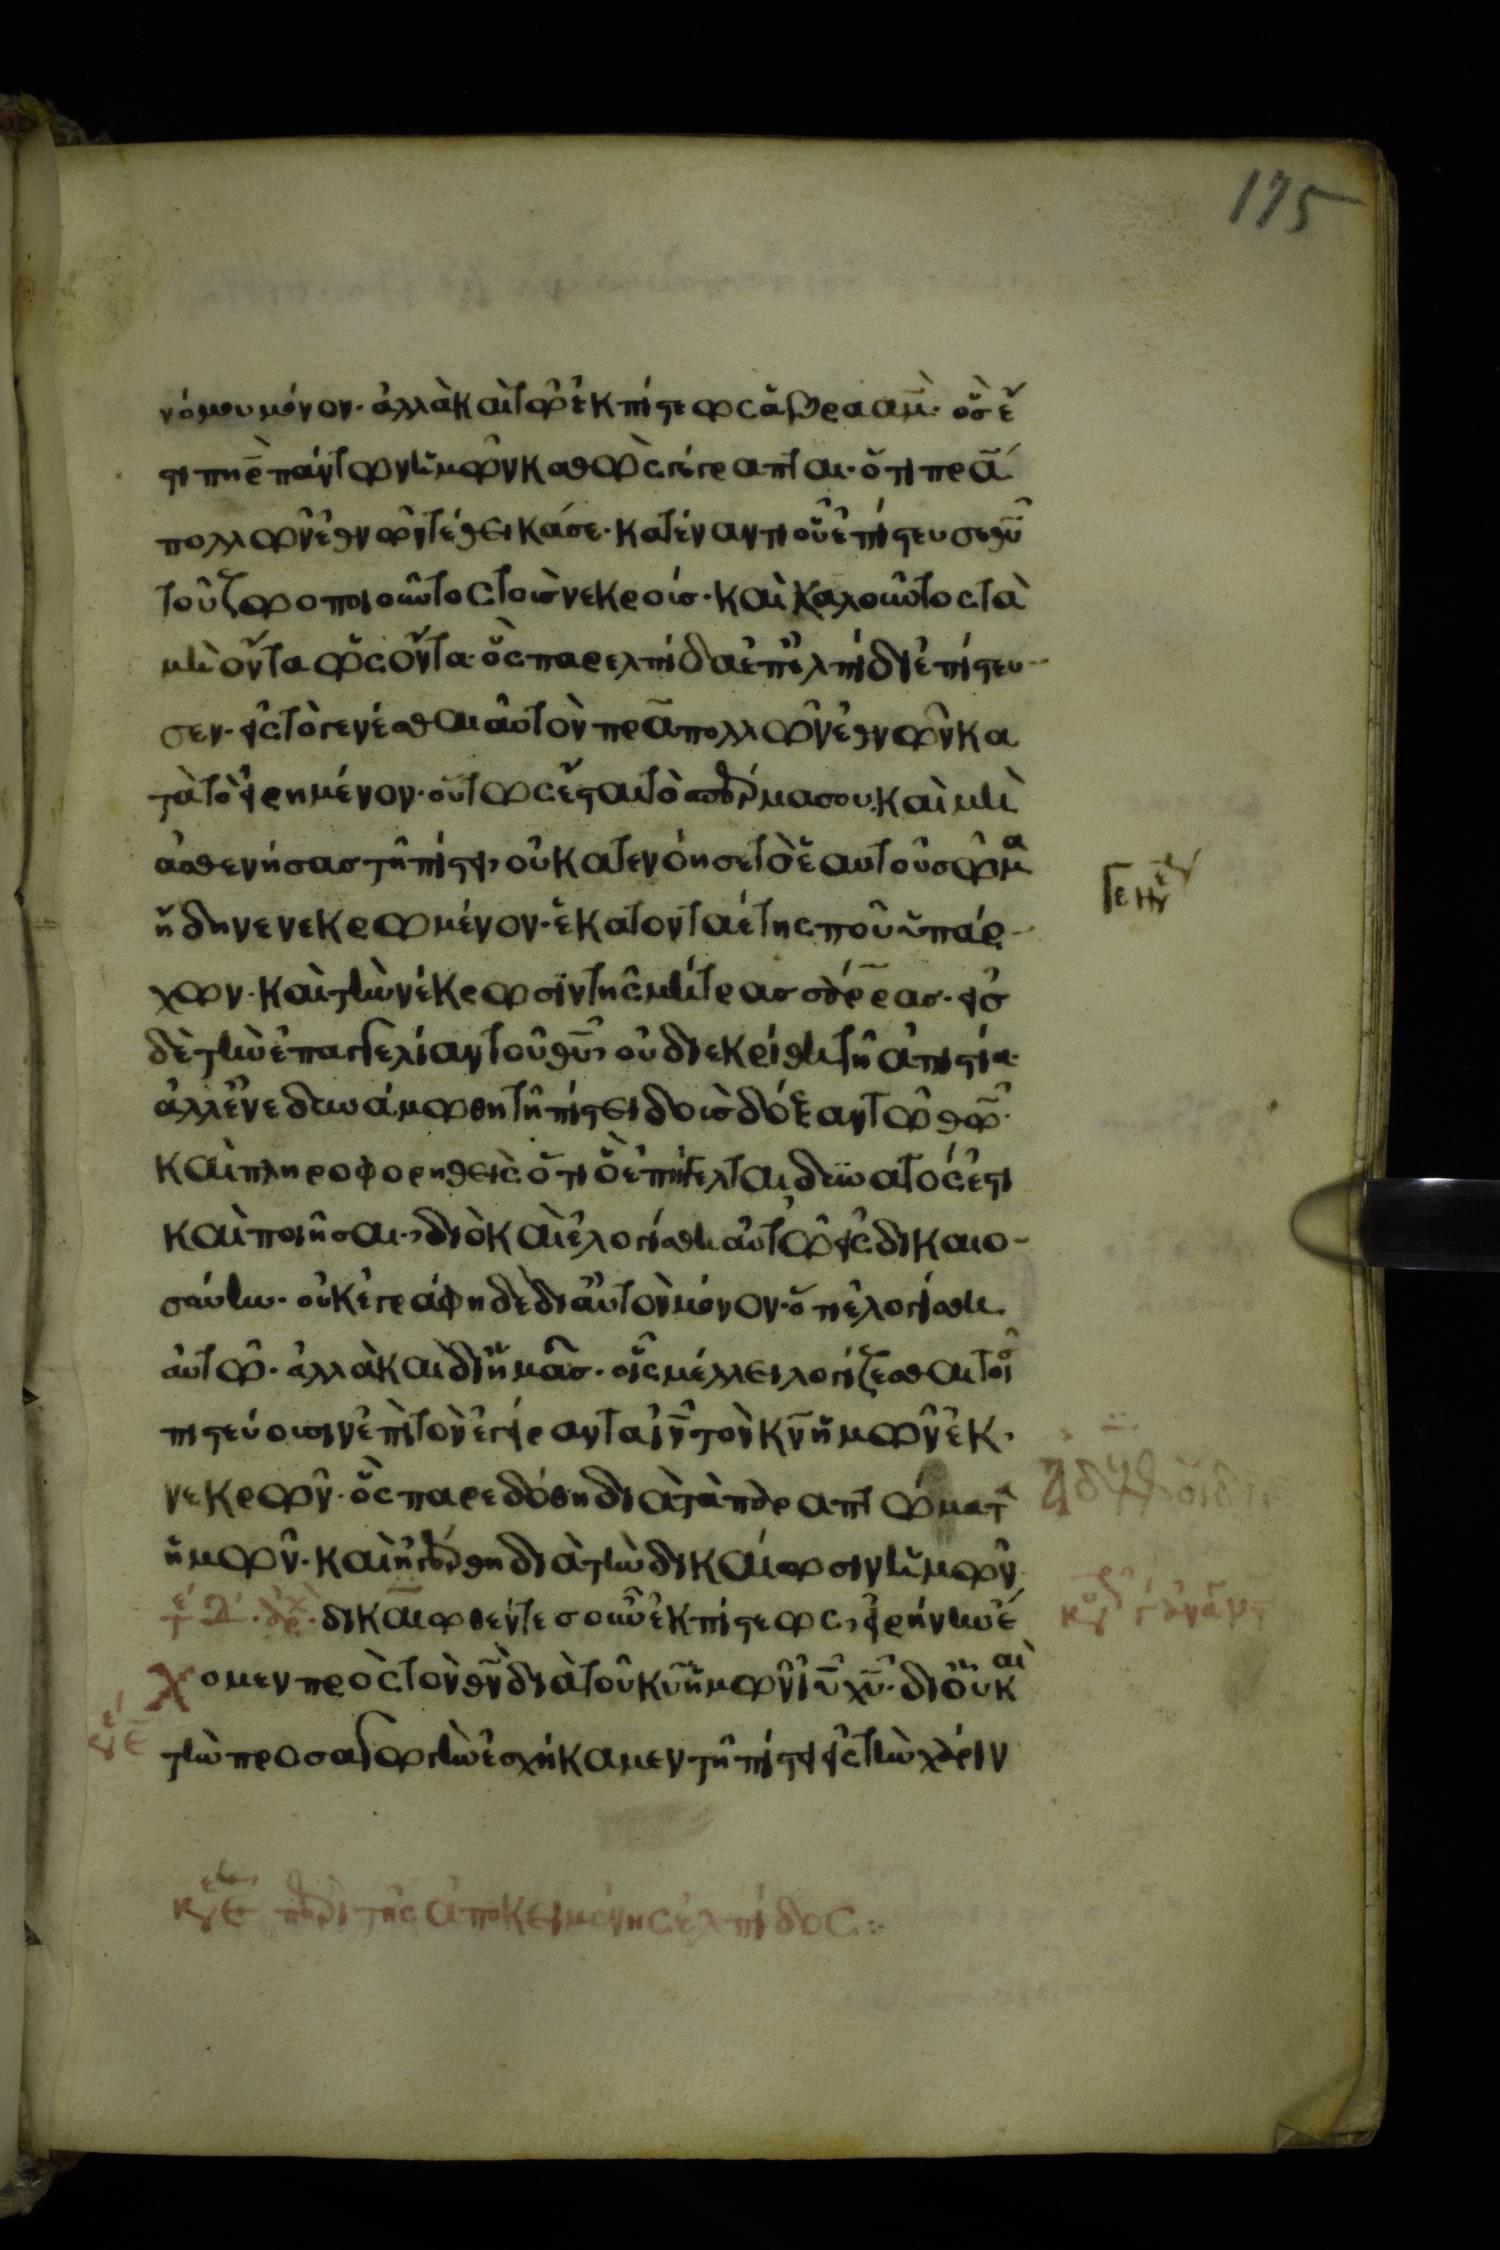 175
νόμου μόνον· ἀλλὰ καὶ τῷ ἐκ πίστεως ἁβραάμ· ὅς ἐ
στι πη̅ρ̅ πάντων ἡμῶν καθὼς γέγραπται· ὅτι πρ̅α̅
πολλῶν ἐθνῶν τέθεικά σε· κατέναντι οὗ ἐπίστευσε θ̅υ̅
τοῦ ζωοποιοῦντος τοὺς νεκρούς· καὶ καλοῦντος τὰ
μὴ ὄντα ὡς ὄντα· ὃς παρ ἐλπίδα ἐπ ἐλπίδι ἐπίστευ
σεν· εἰς τὸ γενέσθαι αὐτὸν πρ̅α̅ πολλῶν ἐθνῶν κα
τὰ τὸ εἰρημένον· οὕτως ἔσται τὸ σπέρμα σου· καὶ μὴ
ἀσθενήσας τῇ πίστει, οὐ κατενόησε τὸ ἑαυτοῦ σῶμα
ἤδη νενεκρωμένον· ἑκατονταέτης που ὑπάρ
χων· καὶ τὴν νέκρωσιν τῆς μήτρας σάρρας· εἰς
δὲ τὴν ἐπαγγελίαν τοῦ θ̅υ̅, οὐ διεκρίθη τῇ ἀπιστία·
ἀλλ ἐνεδυναμώθη τῇ πίστει δοὺς δόξαν τῷ θ̅ω̅·
καὶ πληροφορηθεὶς ὅτι ὃ ἐπήγγελται δυνατός ἐστι
καὶ ποιῆσαι· διὸ καὶ ἐλογίσθη αὐτῷ εἰς δικαιο
σύνην· οὐκ ἐγράφη δὲ δι αὐτὸν μόνον· ὅτι ἐλογίσθη
αὐτῷ· ἀλλὰ καὶ δι ἡμᾶς· οἷς μέλλει λογίζεσθαι τοῖς
πιστεύουσιν ἐπὶ τὸν ἐγείραντα ι̅ν̅ τὸν κ̅ν̅ ἡμῶν ἐκ
νεκρῶν· ὃς παρεδόθη διὰ τὰ παραπτώματα
ἡμῶν· καὶ ἠγέρθη διὰ τὴν δικαίωσιν ἡμῶν
δικαιωθέντες οὖν ἐκ πίστεως, εἰρήνην ἔ
χομεν πρὸς τὸν θ̅ν̅ διὰ τοῦ κ̅υ̅ ἡμῶν ι̅υ̅ χ̅υ̅· δι οὗ καὶ
τὴν προσαγωγὴν ἐσχήκαμεν τῇ πίστει εἰς τὴν χάριν
ε̅ περὶ τῆς ἀποκειμένης ἐλπίδος: